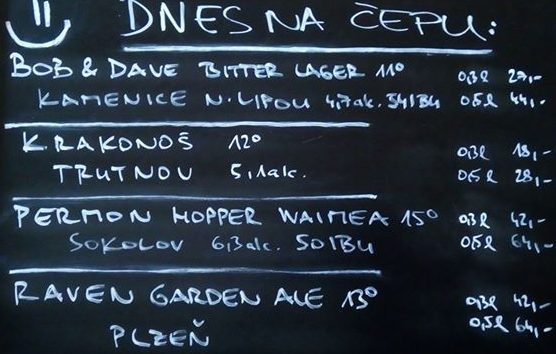 DNES NA ČEPU:
BOB & DAVE BITTER LAGER 11° 0,3l 27,-
KAMENICE N. LIPOU 4,7 alc. 34 IBU 0,5l 44,-
KRAKONOŠ 12° 0,3l 18,-
TRUTNOV 5,1 alc. 0,5l 28,-
PERMON HOPPER WAIMEA 15° 0,3l 42,-
SOKOLOV 6,3 alc. 50 IBU 0,5l 64,-
RAVEN GARDEN ALE 13° 0,3l 42,-
PLZEŇ 0,5l 64,-